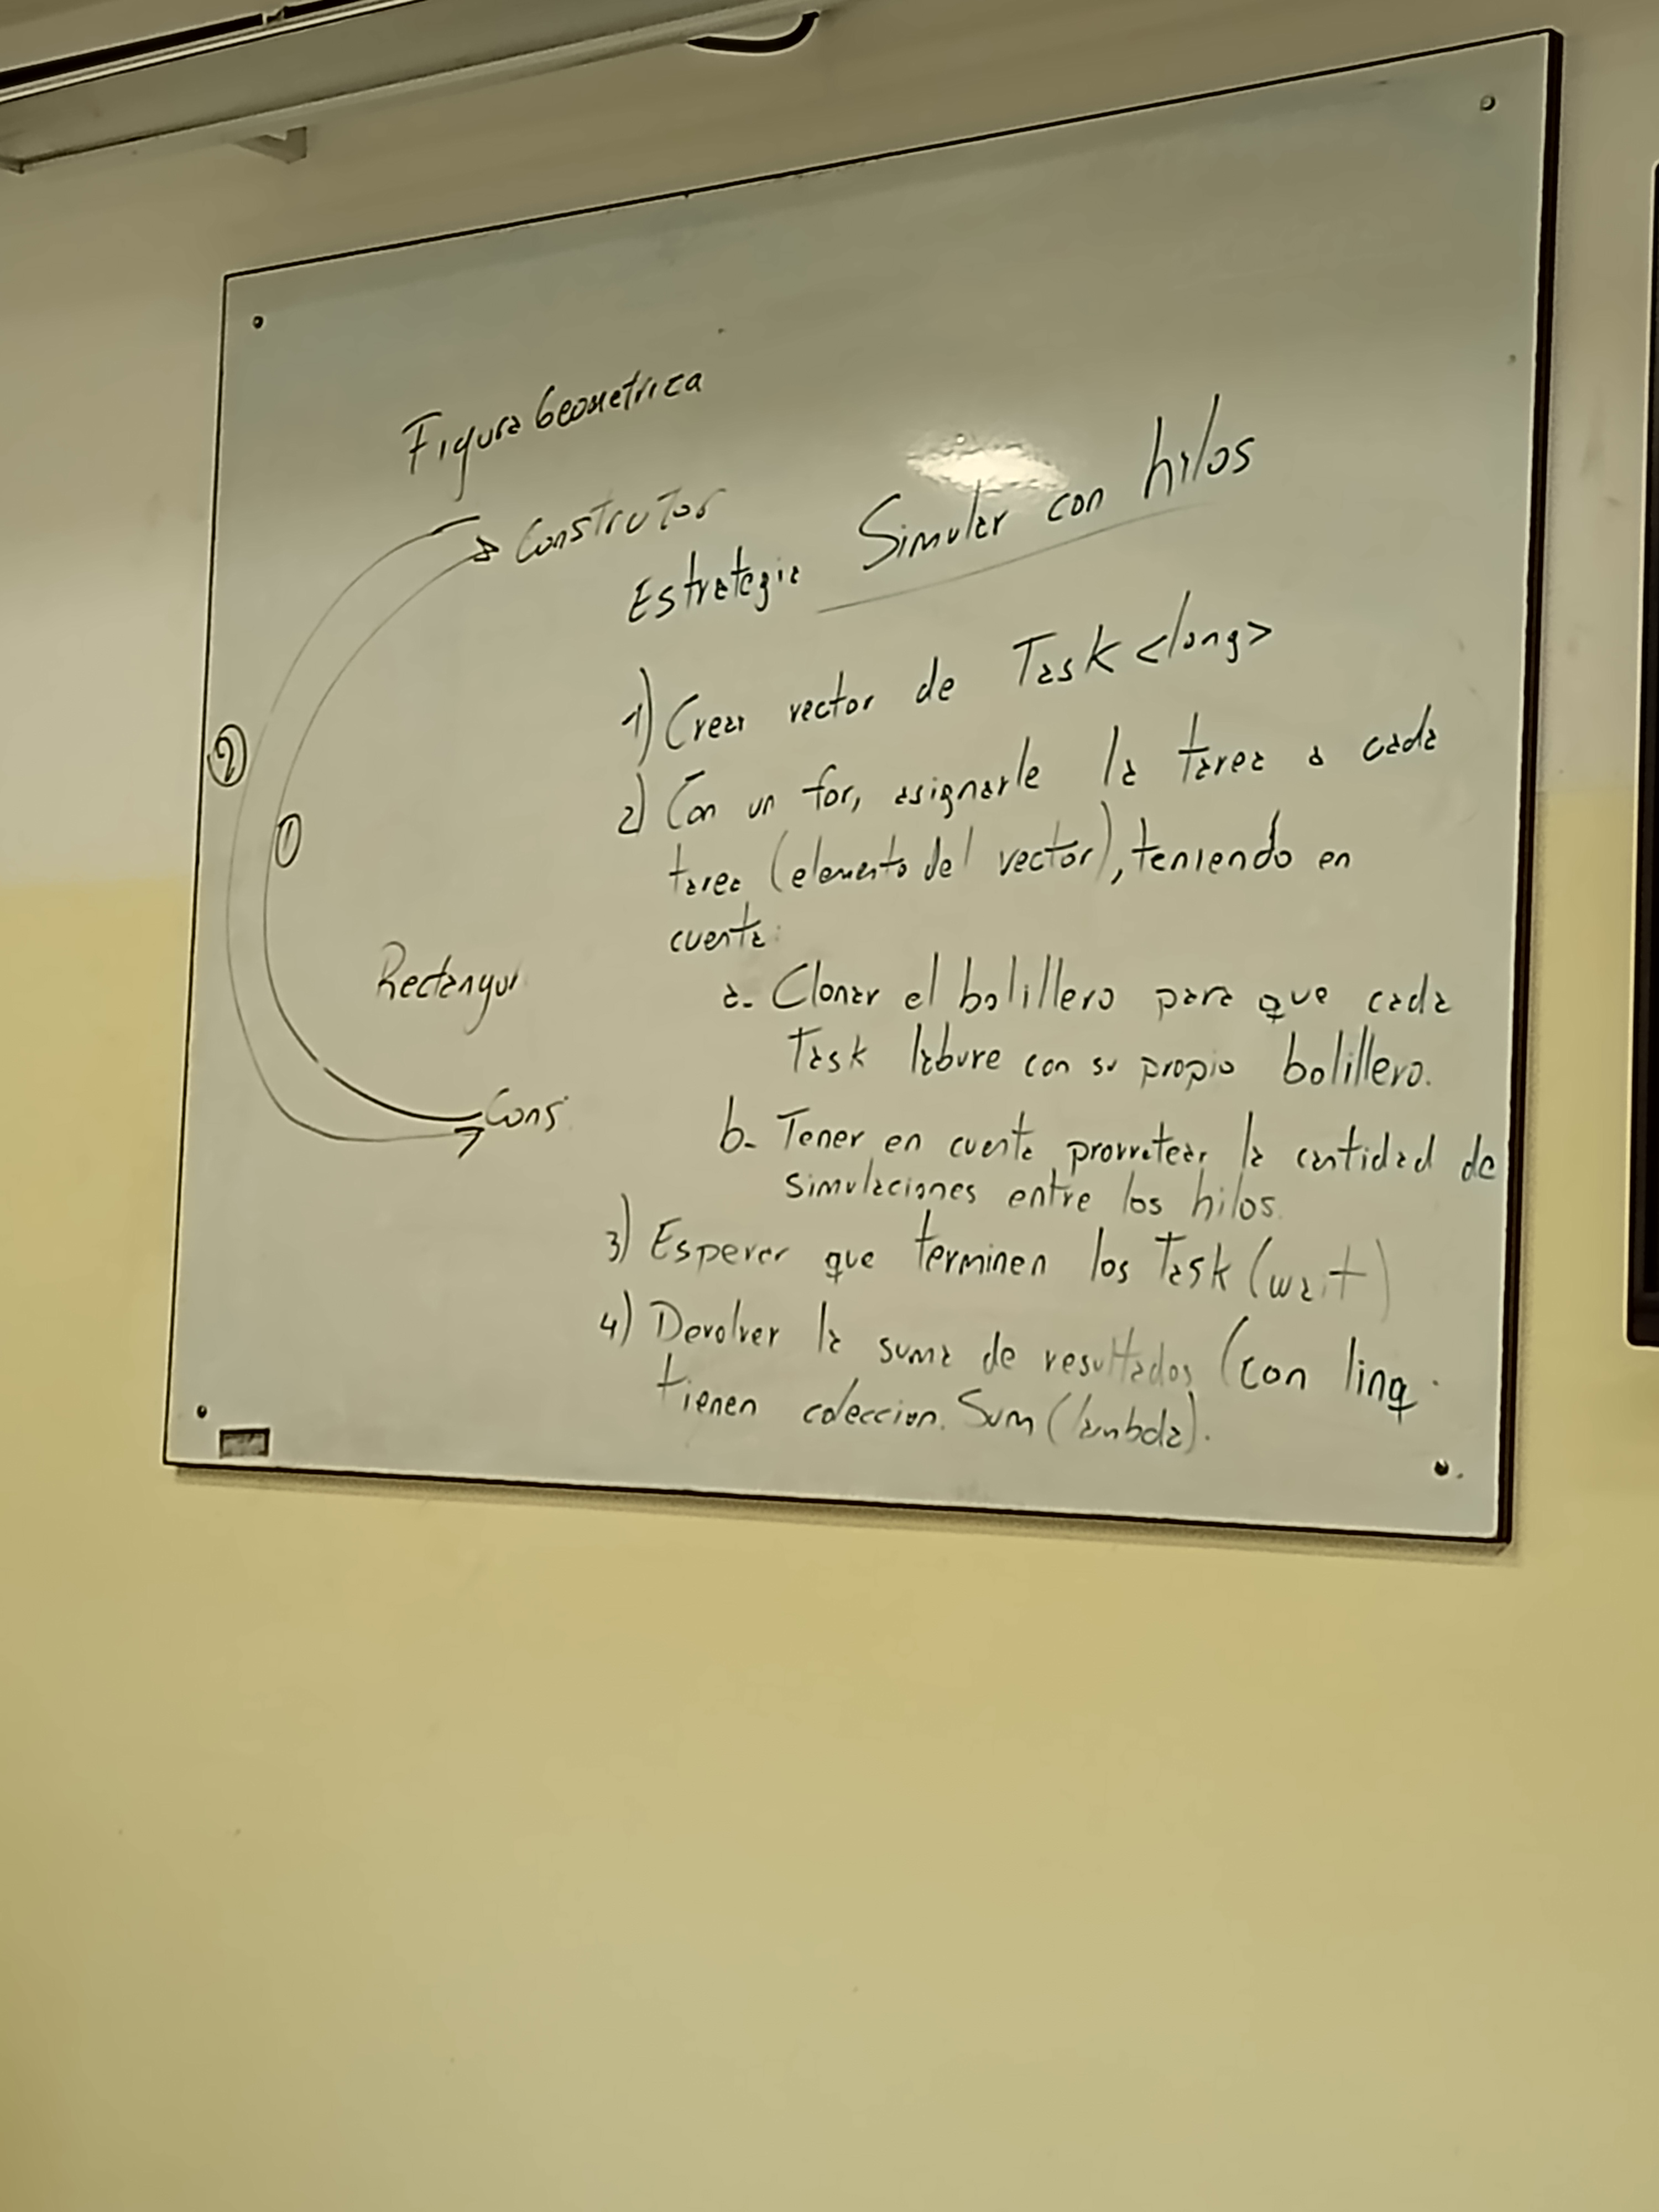 Figura Geometrica
Construtor
Estrategia Simular con hilos
1) Crear vector de Task <long>
2) Con un for, asignarle la tarea a cada
tarea (elemento del vector), teniendo en
cuenta:
a- Clonar el bolillero para que cada
Task labure con su propio bolillero.
b- Tener en cuenta prorratear la cantidad de
simulaciones entre los hilos.
3) Esperar que terminen los Task (wait)
4) Devolver la suma de resultados (con linq
tienen coleccion. Sum (lambda).
2
1
Rectangul
Cons